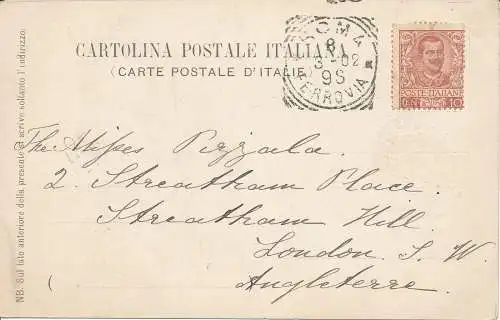 CARTOLINA POSTALE ITALIANA
(CARTE POSTALE D'ITALIE)
ROMA
8
3-02
9S
FERROVIA
POSTE ITALIANE
CENT 10
The Misses Pizzala.
2. Streatham Place.
Streatham Hill.
London. S. W.
Angleterre.
NB. Sul lato anteriore della presente si scrive soltanto l'indirizzo.